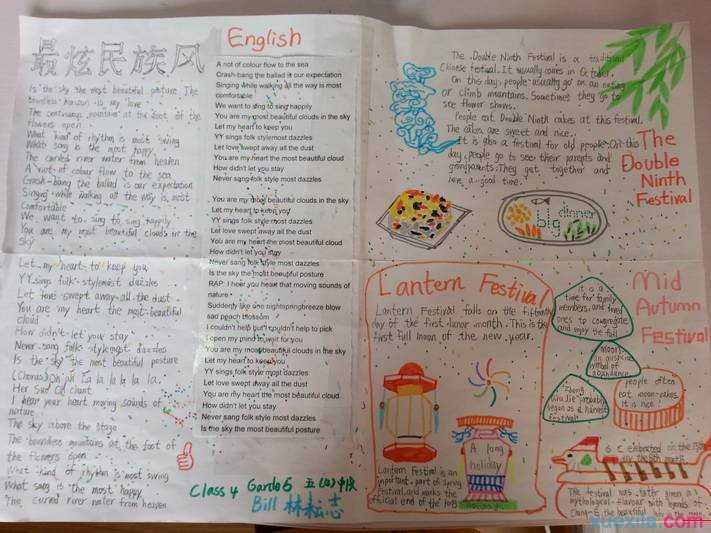 最炫民族风
Is the sky the most beautiful posture The
boundless horizon is my love
The continuous mountains at the foot of the
flowers open
What kind of rhythm is most swing
What song is the most happy
The curved river water from heaven
A riot of colour flow to the sea
Crash-bang the ballad is our expectation
Singing while walking all the way is most
comfortable
We want to sing to sing happily
You are my most beautiful clouds in the
sky
Let my heart to keep you
YY sings folk stylemost dazzles
Let love swept away all the dust
You are my heart the most beautiful
cloud
How didn't let you stay
Never sang folk style most dazzles
Is the sky the most beautiful posture
I hear your heart moving sounds of
nature
The sky above the stage
The boundless mountains at the foot of
the flowers open
What kind of rhythm is most swing
What song is the most happy
The curved river water from heaven
English
A riot of colour flow to the sea
Crash-bang the ballad is our expectation
Singing while walking all the way is most
comfortable
We want to sing to sing happily
You are my most beautiful clouds in the sky
Let my heart to keep you
YY sings folk stylemost dazzles
Let love swept away all the dust
You are my heart the most beautiful cloud
How didn't let you stay
Never sang folk style most dazzles
You are my most beautiful clouds in the sky
Let my heart to keep you
YY sings folk style most dazzles
Let love swept away all the dust
You are my heart the most beautiful cloud
How didn't let you stay
Never sang folk style most dazzles
Is the sky the most beautiful posture
RAP: I hear you heart that moving sounds of
nature
Suddenly like one nightspringbreeze blow
sad peach blossom
I couldn't help but couldn't help to pick
I open my mind to wait for you
You are my most beautiful clouds in the sky
Let my heart to keep you
YY sings folk style most dazzles
Let love swept away all the dust
You are my heart the most beautiful cloud
How didn't let you stay
Never sang folk style most dazzles
Is the sky the most beautiful posture
Class 4 Garde 6
Bill 林松志
The Double Ninth Festival is a traditional
Chinese festival. It usually comes in October.
On this day, people usually go on an outing
or climb mountains. Sometimes they go to
see flower shows.
People eat Double Ninth cakes at this festival.
The cakes are sweet and nice.
It is also a festival for old people. On this
day, people go to see their parents and
grandparents. They get together and
have a good time.
The
Double
Ninth
Festival
big dinner
Lantern Festival
Lantern Festival falls on the fifteenth
day of the first lunar month. This is the
first full moon of the new year.
Lantern Festival is an
important part of Spring
Festival, and marks the
official end of the long
A long
holiday
Mid
Autumn
Festival
It is a
time for family
members and loved
ones to congregate
and enjoy the full
people often
eat moon-cakes
it is nice!
The festival was later given a
mythological flavour with legends of
Chang-E the beautiful lady in the moon
xuexila.com